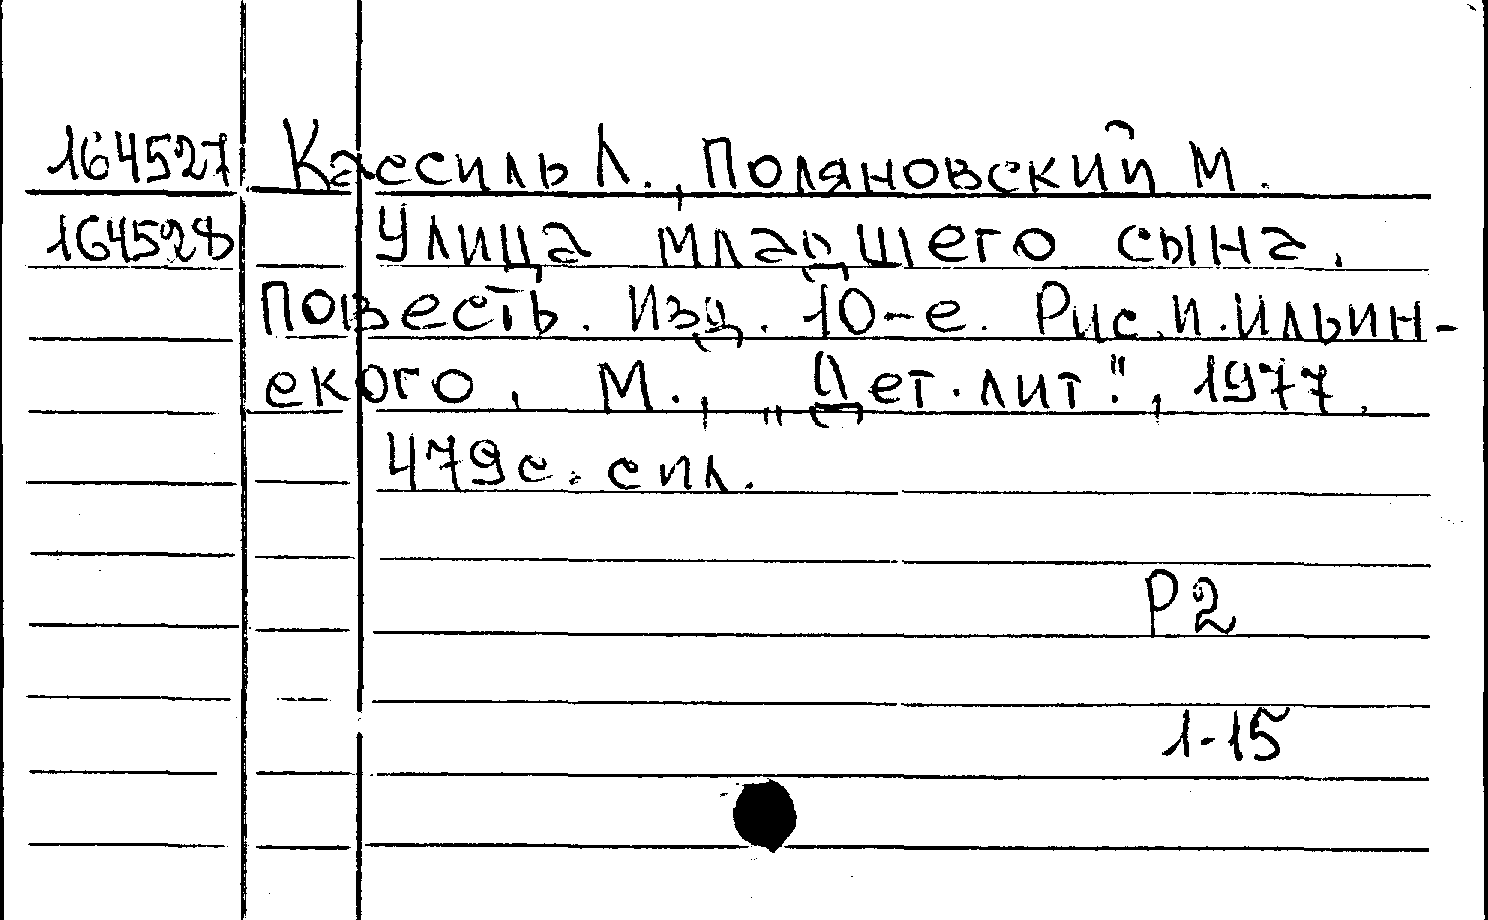 164527 Кассиль Л., Поляновский М.
164528 Улица младшего сына.
Повесть. Изд. 10-е. Рис. И. Ильин-
ского, М., „Дет. лит.", 1977.
479с. с ил.
Р2
1-15